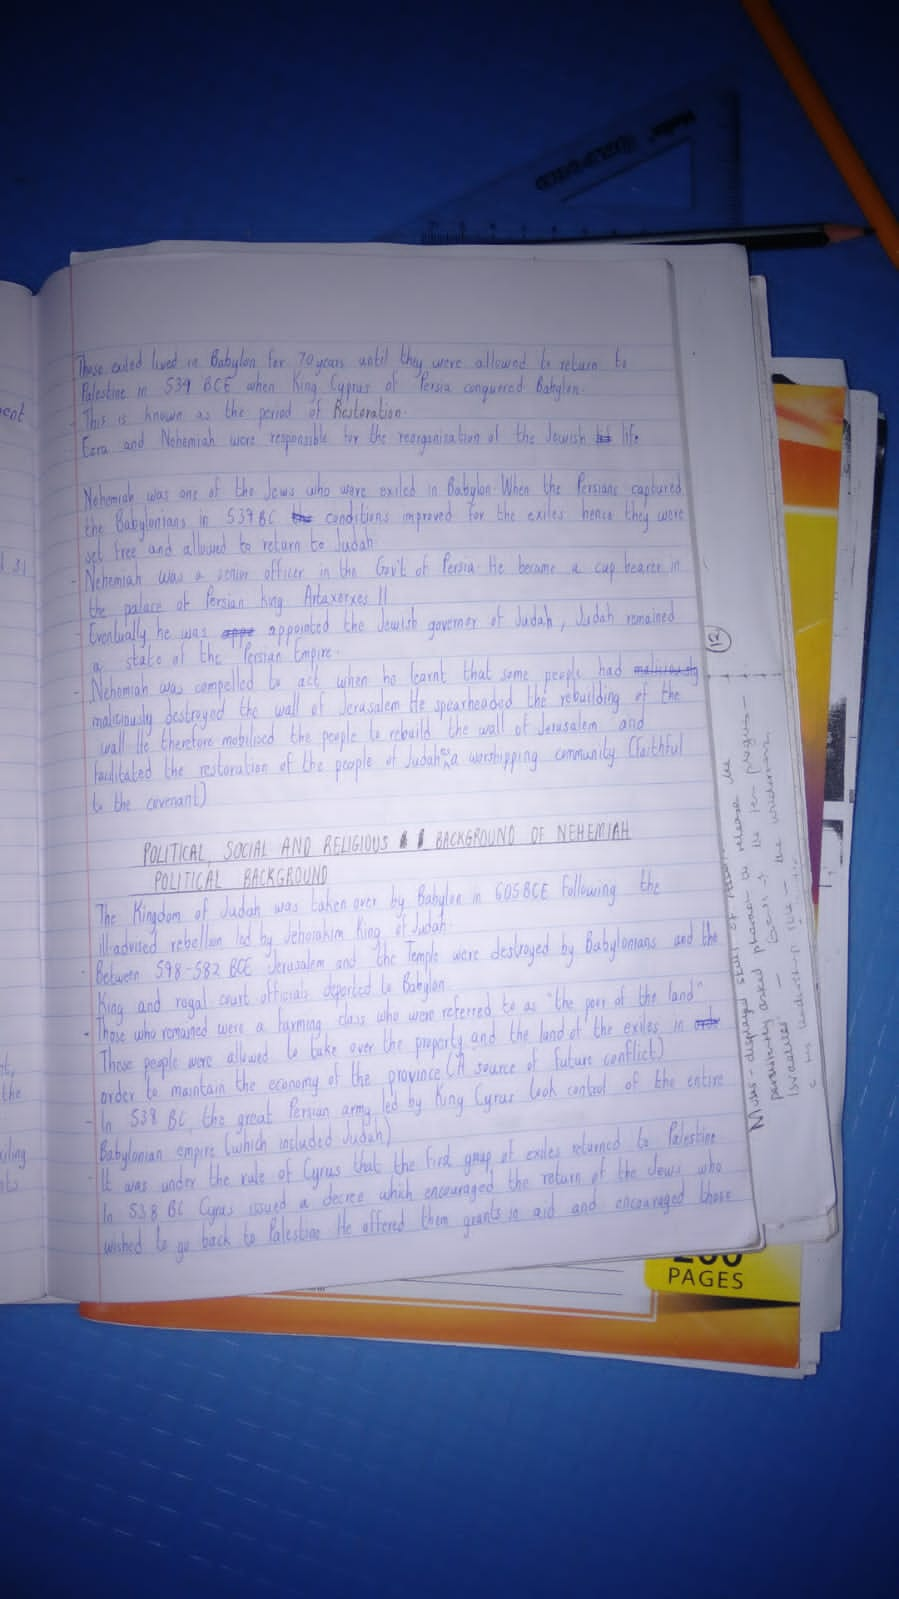 Those exiled lived in Babylon for 70 years until they were allowed to return to
Palestine in 539 BCE when King Cyprus of Persia conquered Babylon.
- This is known as the period of Restoration.
Ezra and Nehemiah were responsible for the reorganisation of the Jewish life
Nehemiah was one of the Jews who were exiled in Babylon When the Persians captured
the Babylonians in 539 BC conditions improved for the exiles hence they were
set free and allowed to return to Judah
- Nehemiah was a senior officer in the Gov't of Persia He became a cup bearer in
the palace of Persian king Artaxerxes II
Eventually he was appointed the Jewish governer of Judah, Judah remained
a state of the Persian Empire.
- Nehemiah was compelled to act when he learnt that some people had
maliciously destroyed the wall of Jerusalem He spearheaded the rebuilding of the
wall He therefore mobilised the people to rebuild the wall of Jerusalem and
facilitated the restoration of the people of Judah as a worshipping community (faithful
to the covenant)
POLITICAL, SOCIAL AND RELIGIOUS BACKGROUND OF NEHEMIAH
POLITICAL BACKGROUND
The Kingdom of Judah was taken over by Babylon in 605 BCE following the
ill-advised rebellion led by Jehoiakim King of Judah.
- Between 598-582 BCE Jerusalem and the Temple were destroyed by Babylonians and the
King and royal court officials deported to Babylon.
- Those who remained were a farming class who were referred to as "the poor of the land"
These people were allowed to take over the property and the land of the exiles in
order to maintain the economy of the province (A source of future conflict)
- In 538 BC the great Persian army led by King Cyrus took control of the entire
Babylonian empire (which included Judah)
- It was under the rule of Cyrus that the first group of exiles returned to Palestine
In 538 BC Cyrus issued a decree which encouraged the return of the Jews who
wished to go back to Palestine He offered them grants in aid and encouraged those
12
Moses - displayed skills of
persistently asked pharaoh to release the
Israelites - the ten plagues -
the wilderness
200
PAGES